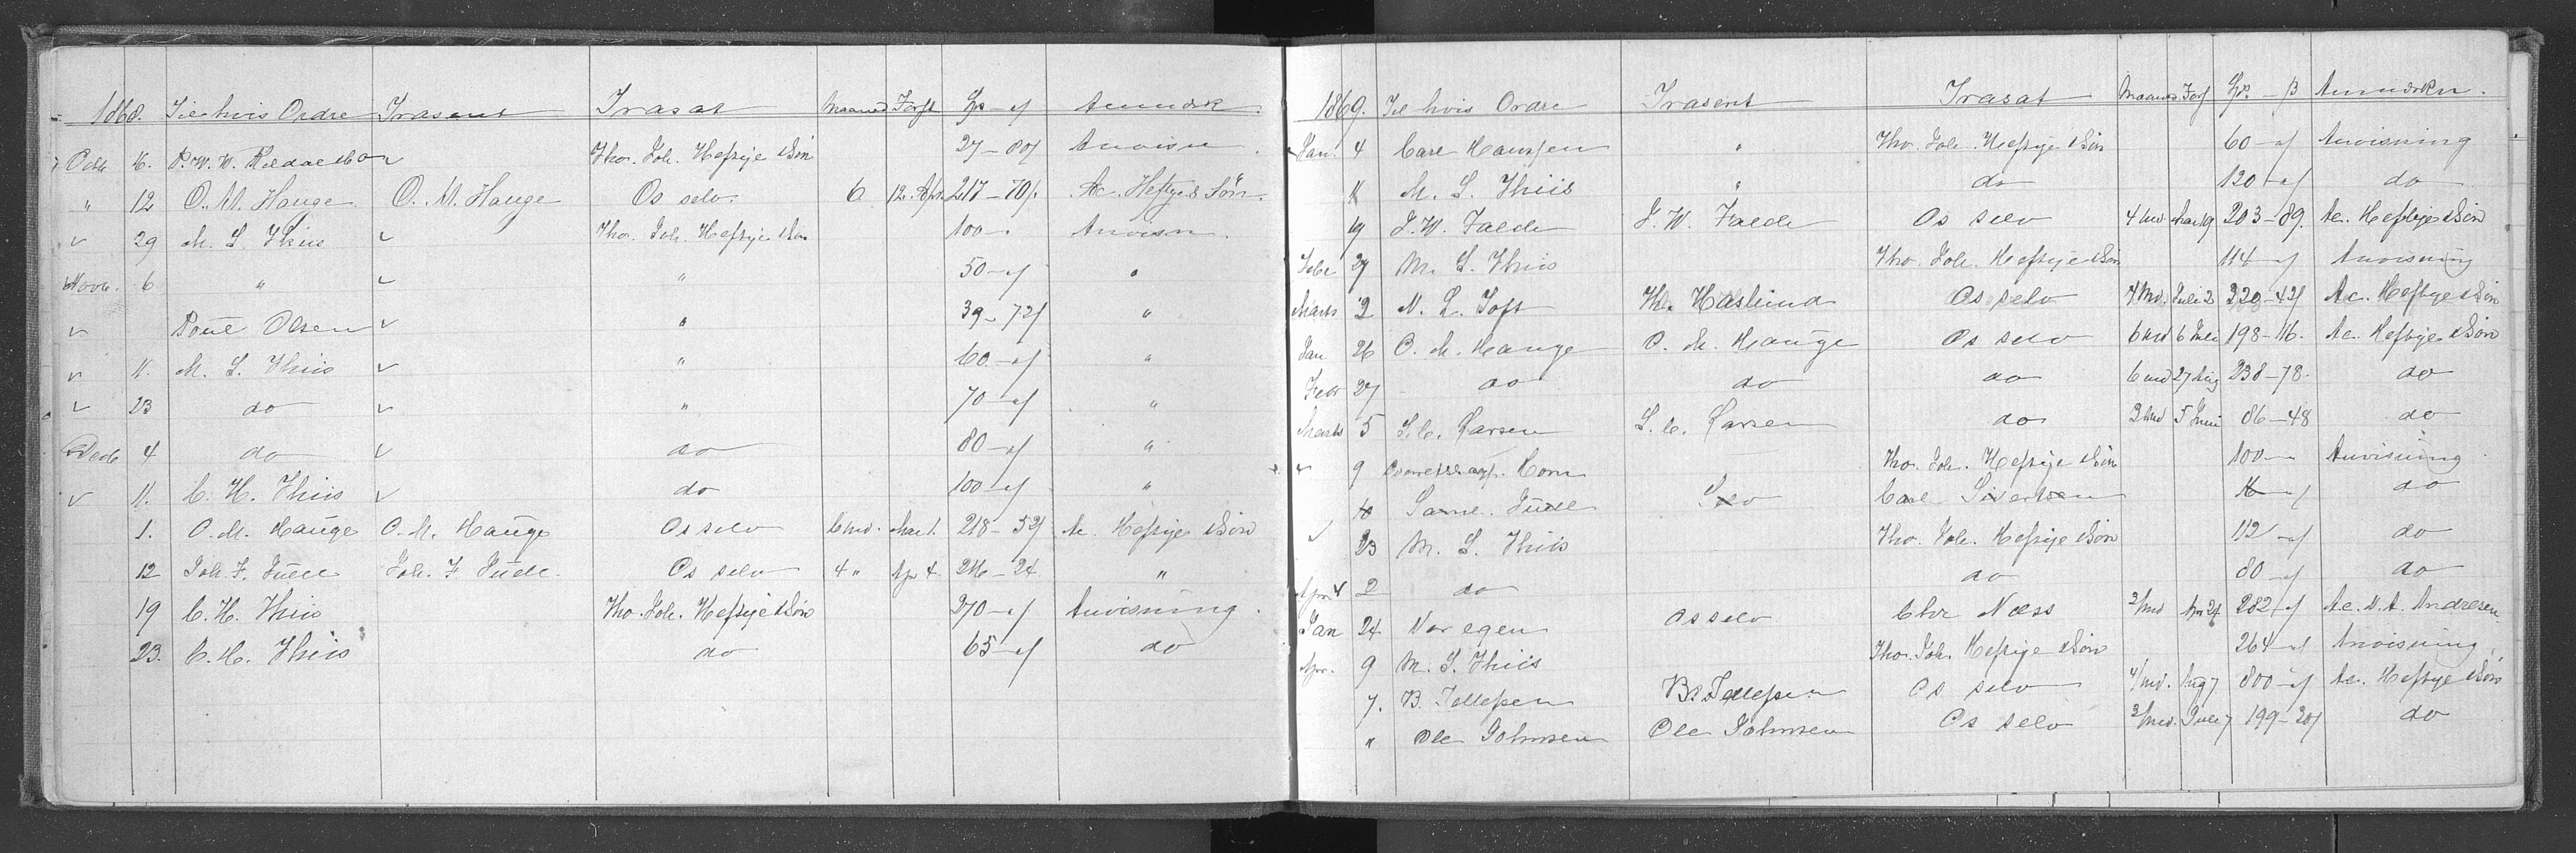 1868. Til hvis Ordre Trasent Trasat Maaned Forf. Sp - ß Anmærk.
Octb 6. P. W. W. Kildal & Co " Tho. Joh. Heftye & Søn 27 - 80ß Anvisn.
" 12 O. M. Hauge O. M. Hauge Os selv 6 12. Apr. 217 - 70ß. Ac. Heftye & Søn.
" 29 M. S. Thiis " Tho. Joh. Heftye & Søn 100 . Anvisn.
Novb. 6 " " " 50 - ß "
" Poul Olsen " " 39 - 72ß "
" 11. M. S. Thiis " " 60 - ß "
" 23 do " " 70 - ß "
Decb 4 do " do 80 - ß "
" 11. C. H. Thiis " do 100 - ß "
1. O. M. Hauge O. M. Hauge Os selv 6 md. Mar 1. 218 - 52ß Ac. Heftye & Søn
12 Joh. F. Juell Joh. F. Juell Os selv 4 " Apr 4. 216 - 24 "
19 C. H. Thiis Tho. Joh. Heftye & Søn 270 - ß Anvisning.
23. C. H. Thiis do 65 - ß do
1869. Til hvis Ordre Trasent Trasat Maaned Forf Sp. - ß Anmærkn.
Jan. 4 Carl Hanssen " Tho. Joh. Heftye & Søn 60 - ß Anvisning
11 M. S. Thiis " do 120 - ß do
19 J. W. Falde J. W. Falde Os selv 4 md Mai 19 203 - 89. Ac. Heftye & Søn
Febr 27 M. S. Thiis Tho. Joh. Heftye & Søn 114 - ß Anvisning
Marts 2 N. L. Toft Th. Haslund Os selv 4 Md. Juli 2 220 - 42ß Ac. Heftye & Søn
Jan 26 O. M. Hauge O. M. Hauge Os selv 6 md 6 Juli 198 - 116. Ac. Heftye & Søn
Febr 27 do do do 6 md 27 Aug 238 - 78. do
Marts 5 L. C. Larsen L. C. Larsen do 3 md 5 Juni 86 - 48 do
" 9 Horn Tho. Joh. Heftye & Søn 100 - Anvisning
10 Saml. Juell Selv Carl Sivertsen 16 - ß do
" 23 M. S. Thiis Tho. Joh. Heftye & Søn 112 - ß do
April 2 do do 80 - ß do
Jan 24 Vor egen Os selv Chr Næss 3/md Apr 24. 282 - ß Ac. N. A. Andresen
Apr. 9 M. S. Thiis Tho. Joh. Heftye & Søn 264 - ß Anvisning
7. B. Tellefsen B. Tellefsen Os selv 4/md. Aug 7 800 - ß Ac. Heftye & Søn
" Ole Johnsen Ole Johnsen Os selv 3/md. Juli 7 199 - 30ß do